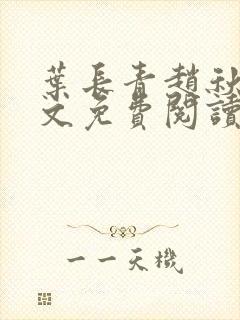 葉長青趙秋
文免費閱讀
一一天機